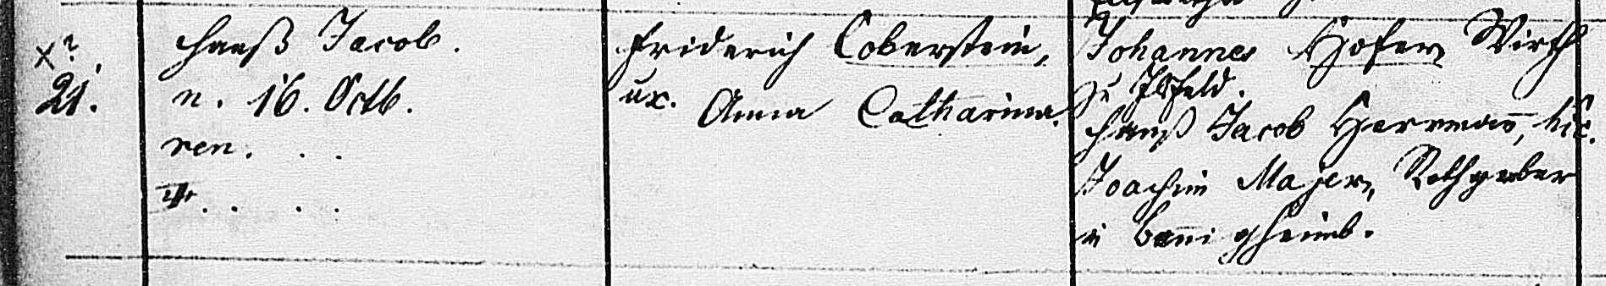 X?
21.
Hanß Jacob.
n. 16. Octb.
ren. . .
Friderich Coberstein,
ux. Anna Catharina.
Johannes Hofer, Wirth
zu Ilsfeld.
Hanß Jacob Herrmañ, hic.
Joachim Majer, Rothgerber
in Bönnigheimb.